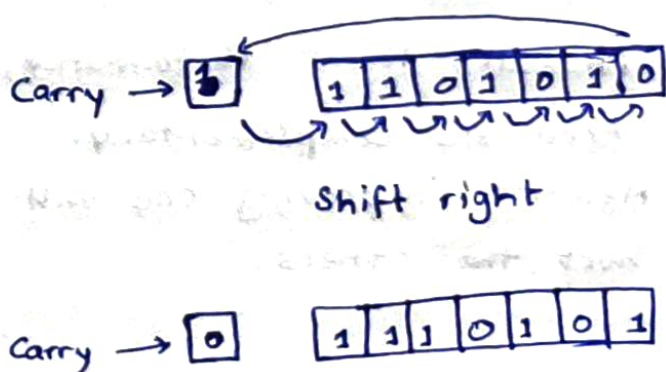 Carry → 1 1 1 0 1 0 1 0
Shift right
Carry → 0 1 1 1 0 1 0 1